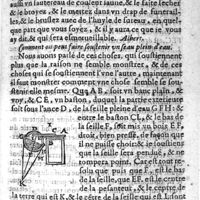 aussi un lauterau de couleur iaune, & le faire secher
& le broyez, & le mettez dans vn drap de funerail-
les, & le bruslez auec de l'huyle de sureau, en quel-
que part que vous soyez, & il y aura ce que ie vous
ay dit, & qui sera esmerueillable. Albert.
Comment on peut faire soustenir vn seau plein d'eau.
Nous auons parlé de ces choses, qui soustiennent
plus que la raison ne semble monstrer, & de ces
choses qui se soustiennent l'vne l'autre, maintenant
il faut monstrer comment vne chose semble se souste-
nir elle mesme. Que A B, soit vn banc plain, &
roy, & C E, vn baston, duquel la partie exterieure
soit sous l'ance D, de la seille pleine d'eau G F H:
entre le baston C L, & le bas de
la seille F, soit mis vn bois E F,
droit, bien pressé, de façon que
il ne puisse choir, & ie soustiens
que la seille sera pendue, & ne
tombera point. Car est tout
resolu que puis que F, est le bas
de la seille, que E, est le centre
de la pesanteur, & le centre de
la terre qui est K, & le centre de la seille qui est L, sont